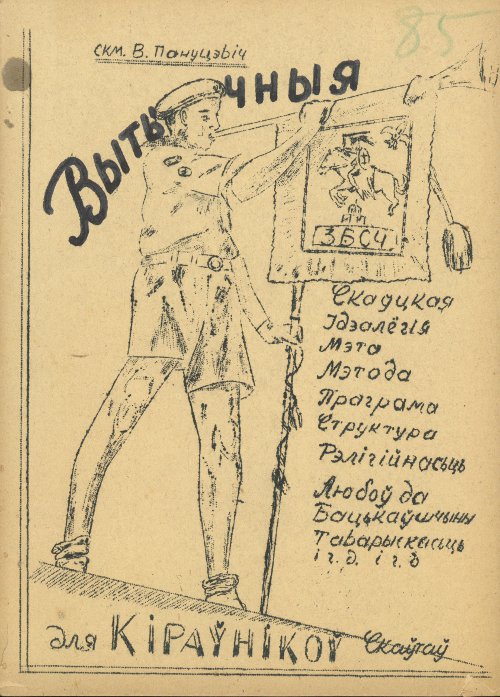 85
скм. В. Пануцэвіч
Вытычныя
ЗБСЧ
Скаўцкая
Ідэалёгія
Мэта
Мэтода
Праграма
Структура
Рэлігійнасьць
Любоў да
Бацькаўшчыны
Таварыскасць
і г. д. і г. д
для КІРАЎНІКОЎ Скаўтаў